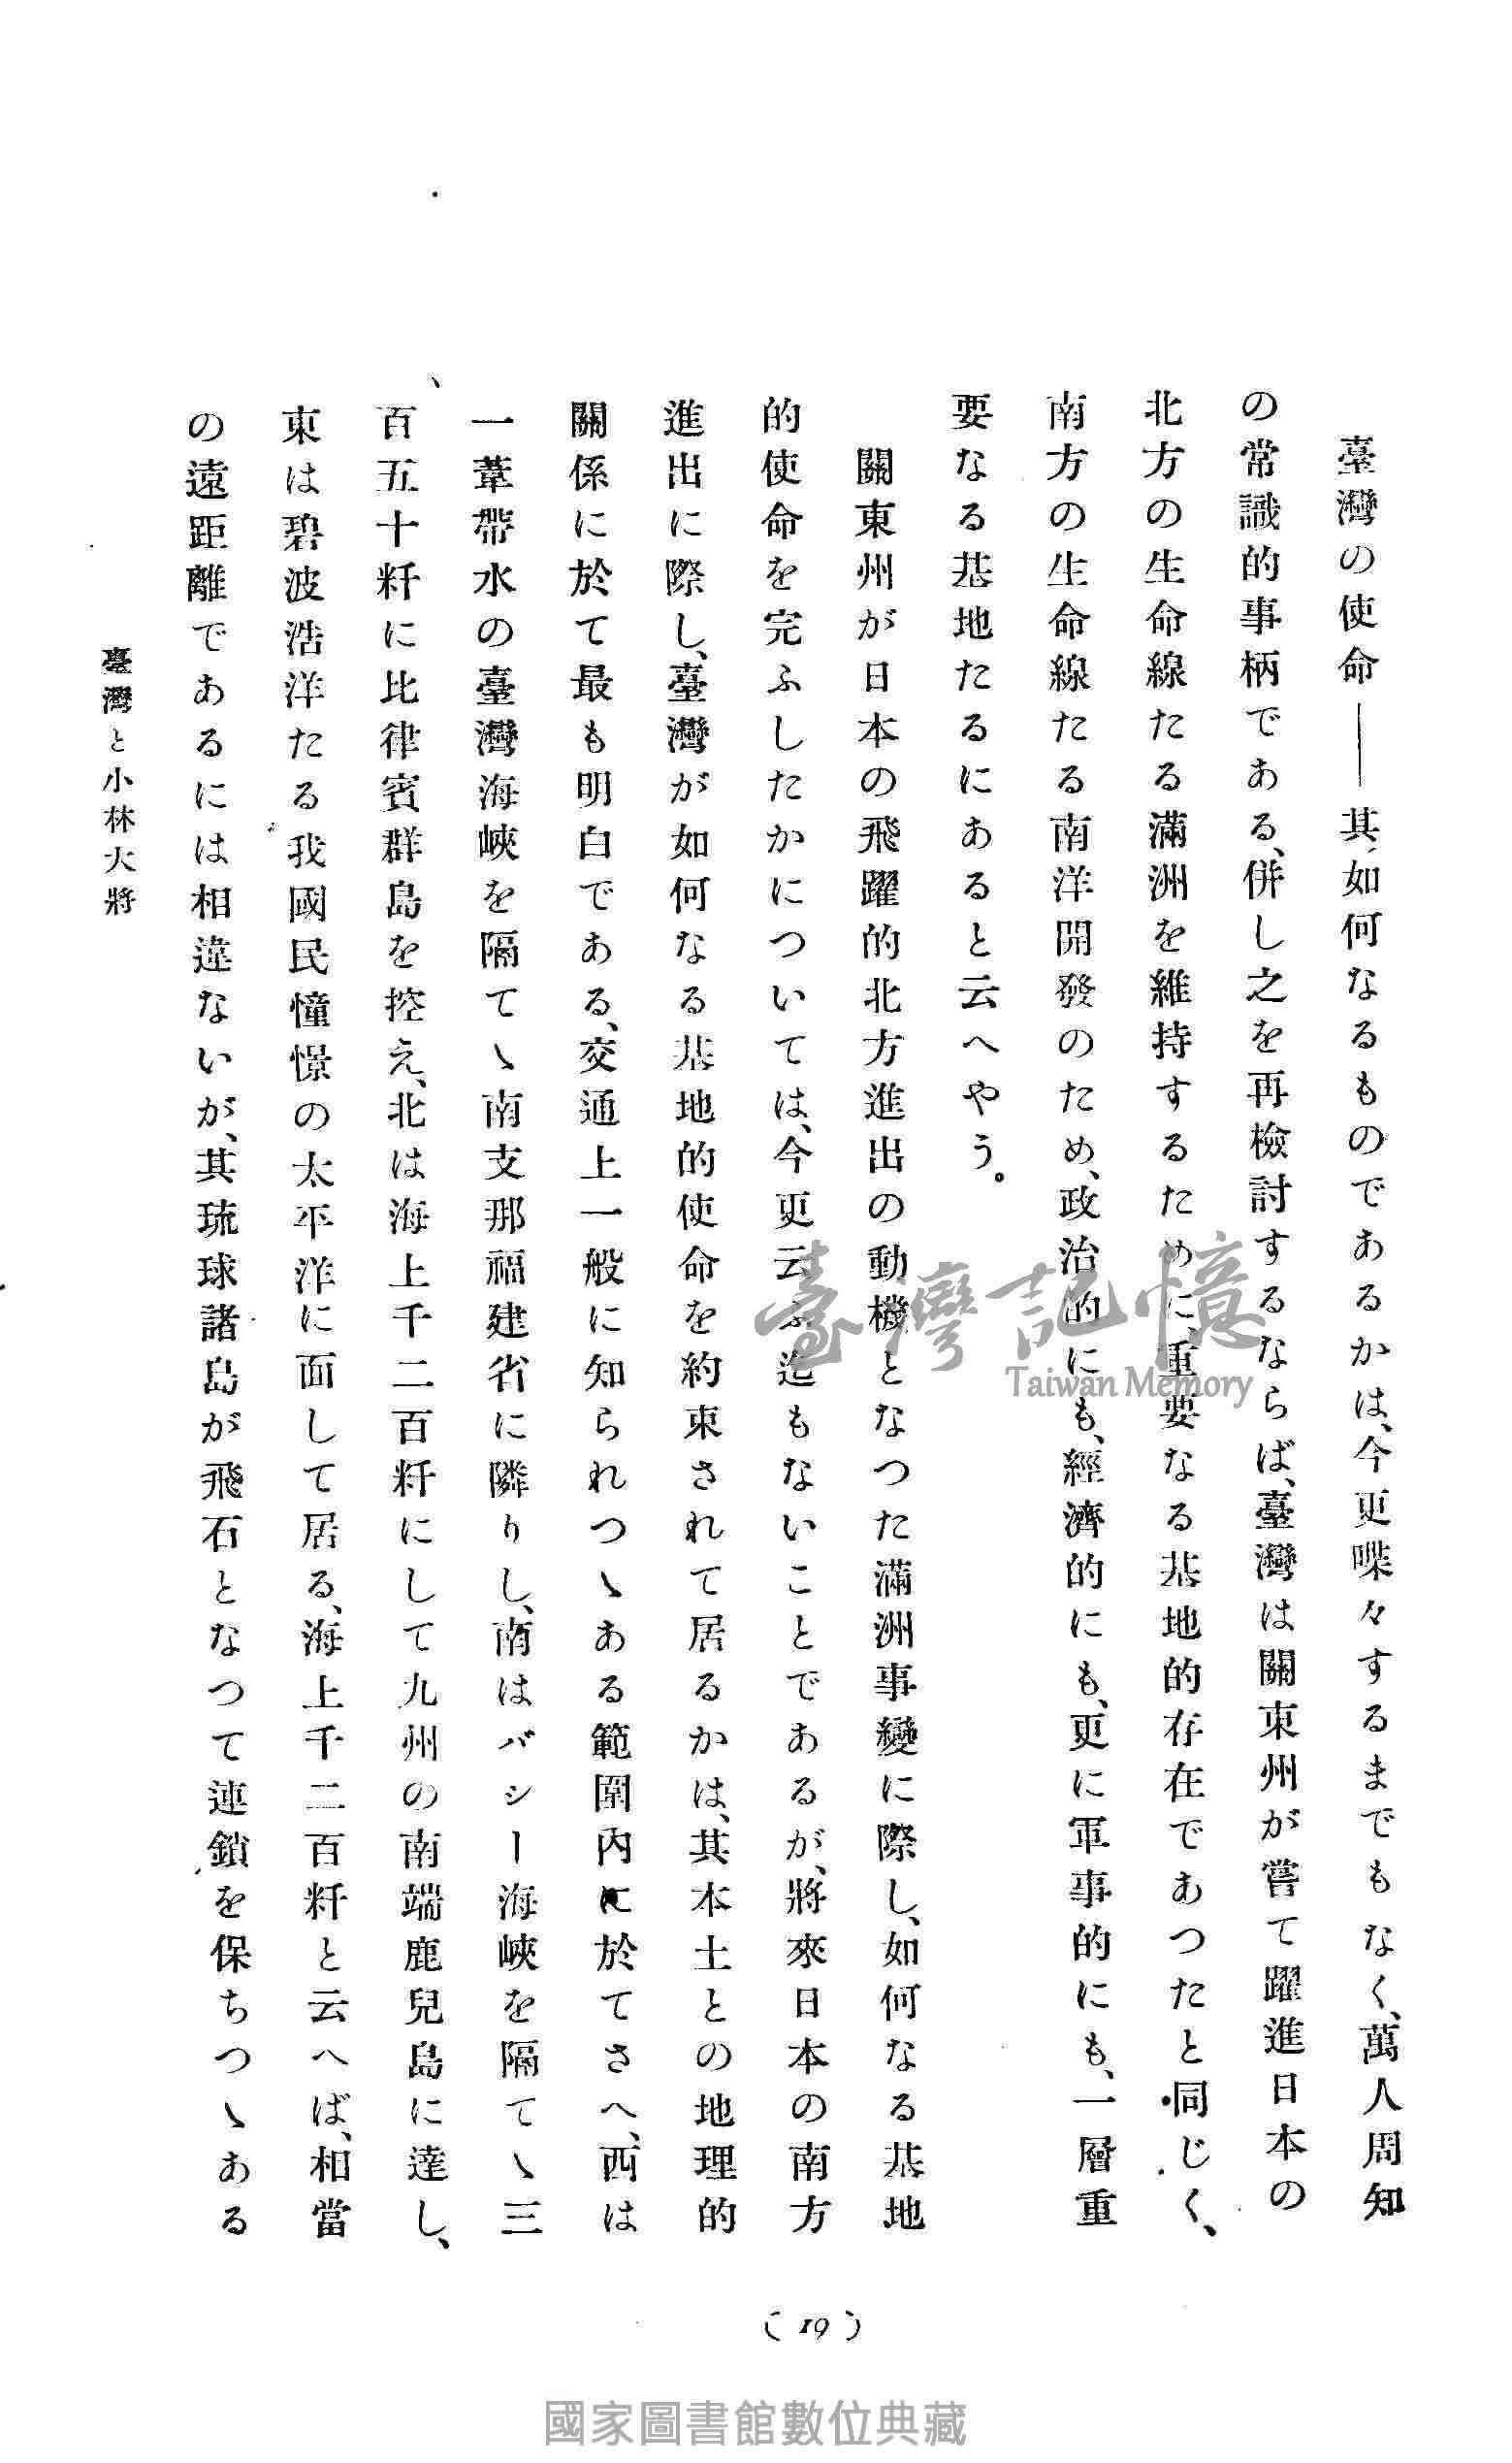 臺灣の使命――其如何なるものであるかは、今更喋々するまでもなく、萬人周知
の常識的事柄である、併し之を再檢討するならば、臺灣は關東州が嘗て躍進日本の
北方の生命線たる滿洲を維持するために、重要なる基地的存在であつたと同じく、
南方の生命線たる南洋開發のため、政治的にも、經濟的にも、更に軍事的にも、一層重
要なる基地たるにあると云へやう。
關東州が日本の飛躍的北方進出の動機となつた滿洲事變に際し、如何なる基地
的使命を完ふしたかについては、今更云ふ迄もないことであるが、將來日本の南方
進出に際し、臺灣が如何なる基地的使命を約束されて居るかは、其本土との地理的
關係に於て最も明白である、交通上一般に知られつゝある範圍內に於てさへ、西は
一葦帶水の臺灣海峽を隔てゝ南支那福建省に隣りし、南はバシー海峽を隔てゝ三
百五十粁に比律賓群島を控え、北は海上千二百粁にして九州の南端鹿兒島に達し、
東は碧波浩洋たる我國民憧憬の太平洋に面して居る、海上千二百粁と云へば、相當
の遠距離であるには相違ないが、其琉球諸島が飛石となつて連鎖を保ちつゝある
臺灣と小林大將
(19)
臺灣記憶
Taiwan Memory
國家圖書館數位典藏